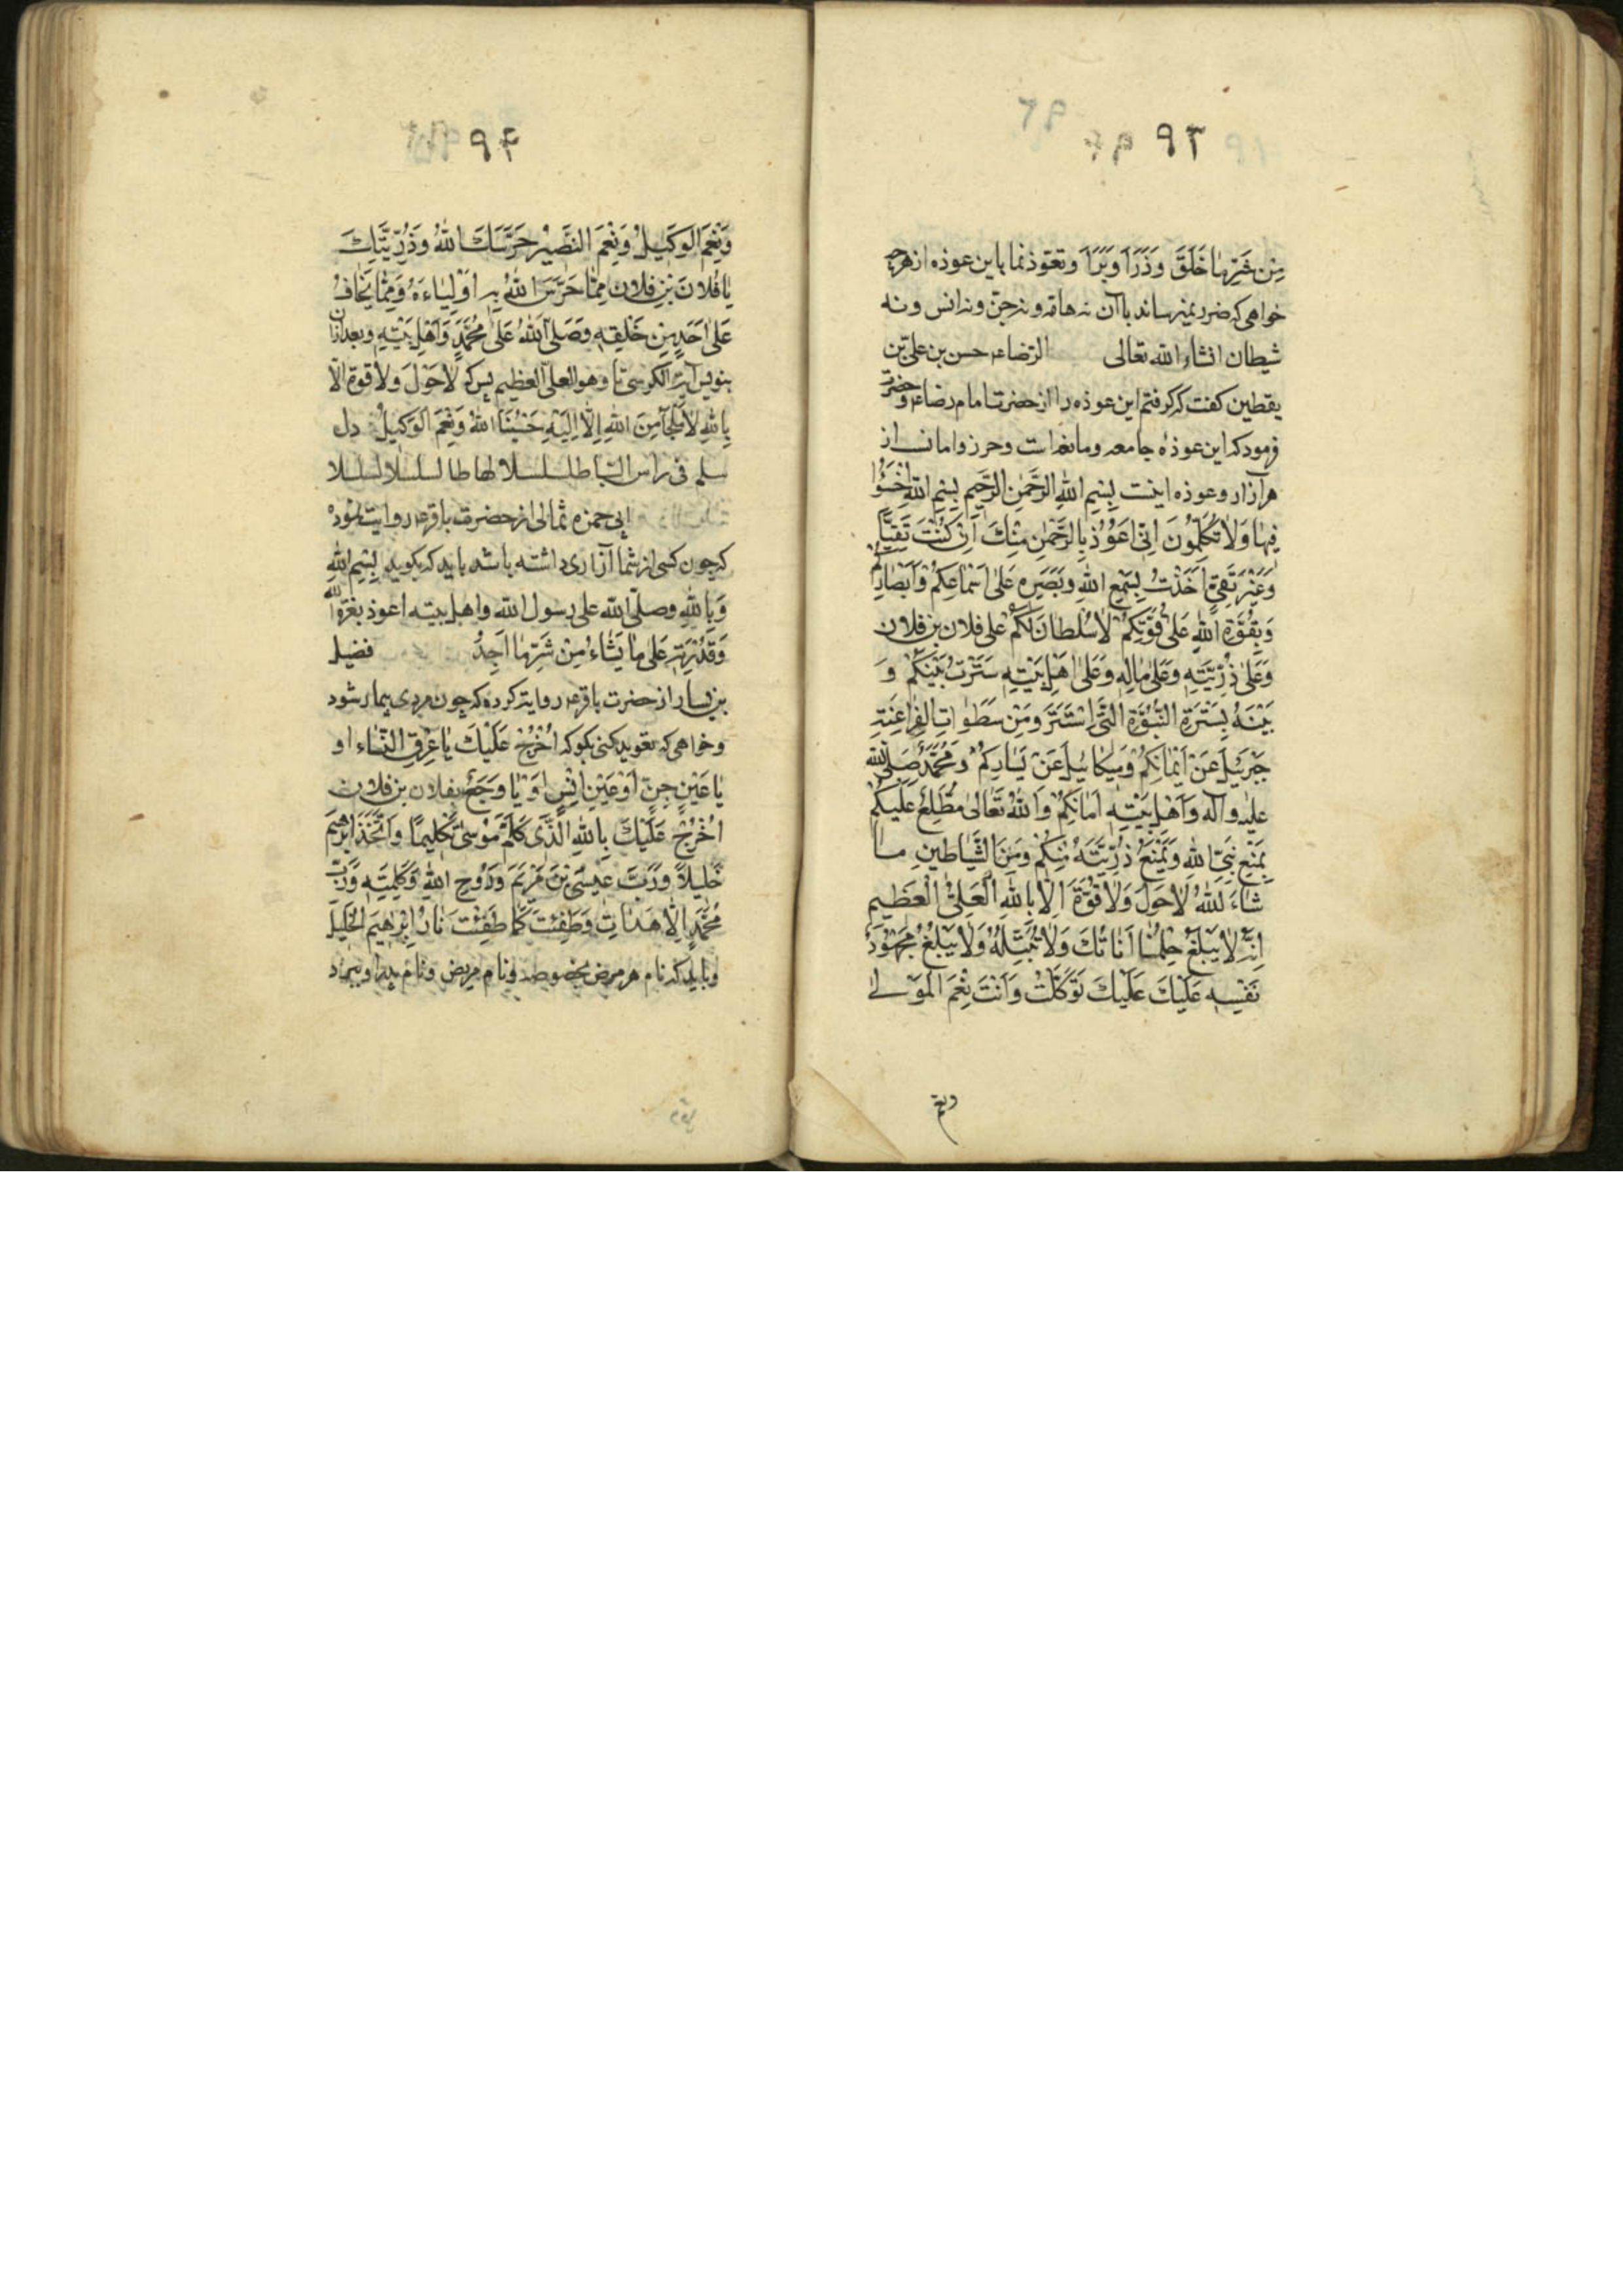 ۹۳
مِن شَرِّ مَا خَلَقَ وَذَرَأَ وَبَرَأَ وتعوذ نما باین عوذه از هرچه
خواهی که ضرر نمیرساند با آن نه هامه و نه جن و نه انس و نه
شیطان انشاء الله تعالی الرضاء حسن بن علی بن
یقطین کفت که کرفتم این عوذه را از حضرت امام رضاء و حضرت
فرمود که این عوذه جامعه و مانعه است و حرز و امانست از
هر آزار و عوذه اینست بِسْمِ اللهِ الرَّحْمٰنِ الرَّحِيمِ بِسْمِ اللهِ اخْسَؤُا
فِيهَا وَلَا تُكَلِّمُونَ اِنِّي اَعُوذُ بِالرَّحْمٰنِ مِنْكَ اِنْ كُنْتَ تَقِيًّا
وَغَيْرَ تَقِيٍّ اَخَذْتُ بِسَمْعِ اللهِ وَبَصَرِهِ عَلَى اَسْمَاعِكُمْ وَاَبْصَارِكُمْ
وَبِقُوَّةِ اللهِ عَلَى قُوَّتِكُمْ لَا سُلْطَانَ لَكُمْ عَلَى فلان بن فلان
وَعَلَى ذُرِّيَّتِهِ وَعَلَى مَالِهِ وَعَلَى اَهْلِ بَيْتِهِ سَتَرْتُ بَيْنَكُمْ وَ
بَيْنَهُ بِسَتْرَةِ النُّبُوَّةِ الَّتِي اسْتَتَرَ وَمِنْ سَطَوَاتِ الْفَرَاعِنَةِ
جَبْرَئِيلُ عَنْ اَيْمَانِكُمْ وَمِيكَائِيلُ عَنْ يَسَارِكُمْ وَمُحَمَّدٌ صَلَّى اللهُ
عليه وآله وَاَهْلِ بَيْتِهِ اَمَامَكُمْ وَاللهُ تَعَالَى مُطَّلِعٌ عَلَيْكُمْ
بِمَنْعِ نَبِيِّ اللهِ وَبِمَنْعِ ذُرِّيَّتِهِ مِنْكُمْ وَمِنَ الشَّيَاطِينِ مَا
شَاءَ اللهُ لَا حَوْلَ وَلَا قُوَّةَ اِلَّا بِاللهِ الْعَلِيِّ الْعَظِيمِ
اِنَّهُ لَا يَبْلُغُ حِلْمُنَا اَنَاتَكَ وَلَا تَمْتَثِلْهُ وَلَا يَبْلُغُ مَجْهُودَ
نَفْسِهِ عَلَيْكَ عَلَيْكَ تَوَكَّلْتُ وَاَنْتَ نِعْمَ الْمَوْلَى
ونعم
۹۴
وَنِعْمَ الْوَكِيلُ وَنِعْمَ النَّصِيرُ حَرَسَكَ اللهُ وَذُرِّيَّتَكَ
يَا فُلَانَ بْنِ فلان مِمَّا حَرَسَ اللهُ بِهِ اَوْلِيَاءَهُ وَمِمَّا يَخَافُ
عَلَى اَحَدٍ مِنْ خَلْقِهِ وَصَلَّى اللهُ عَلَى مُحَمَّدٍ وَاَهْلِ بَيْتِهِ وبعد از آن
بنویس آیة الکرسی تا وهو العلی العظیم پس که لا حَوْلَ وَلا قوة الا
بِاللهِ لَا مَلْجَأَ مِنَ اللهِ اِلَّا اِلَيْهِ حَسْبُنَا اللهُ وَنِعْمَ الْوَكِيلُ دل
سلم فی راس
ابی حمزه ثمالی از حضرت باقرء روایت نموده
که چون کسی از شما آزاری داشته باشد باید که بکوید بِسْمِ اللهِ
وَبِاللهِ وصلّی الله علی رسول الله واهل بیته اعوذ بعزة الله
وَقُدْرَتِهِ عَلَى مَا يَشَاءُ مِنْ شَرِّ مَا اَجِدُ فضیل
بن یسار از حضرت باقرء روایت کرده که چون مردی بیمار شود
وخواهی که تعویذ کنی بکو که اُخْرُجْ عَلَيْكَ يَا عِرْقَ النساء او
يَا عَيْنِ جِنٍّ اَوْ عَيْنِ اِنْسٍ اَوْ يَا وَجَعُ بفلان بن فلان
اُخْرُجْ عَلَيْكَ بِاللهِ الَّذِي كَلَّمَ مُوسَى تَكْلِيمًا وَاتَّخَذَ اِبْرٰهِيمَ
خَلِيلًا وَرَبِّ عِيسَى بْنِ مَرْيَمَ وَرُوحِ اللهِ وَكَلِمَتِهِ وَرَبِّ
مُحَمَّدٍ اِلَّا هَدَأْتِ وَطَفِئْتِ كَمَا طَفِئَتْ نَارُ اِبْرٰهِيمَ الْخَلِيلِ
وباید که نام هر مرض بخصوصه ونام مریض ونام پدر او ببرد